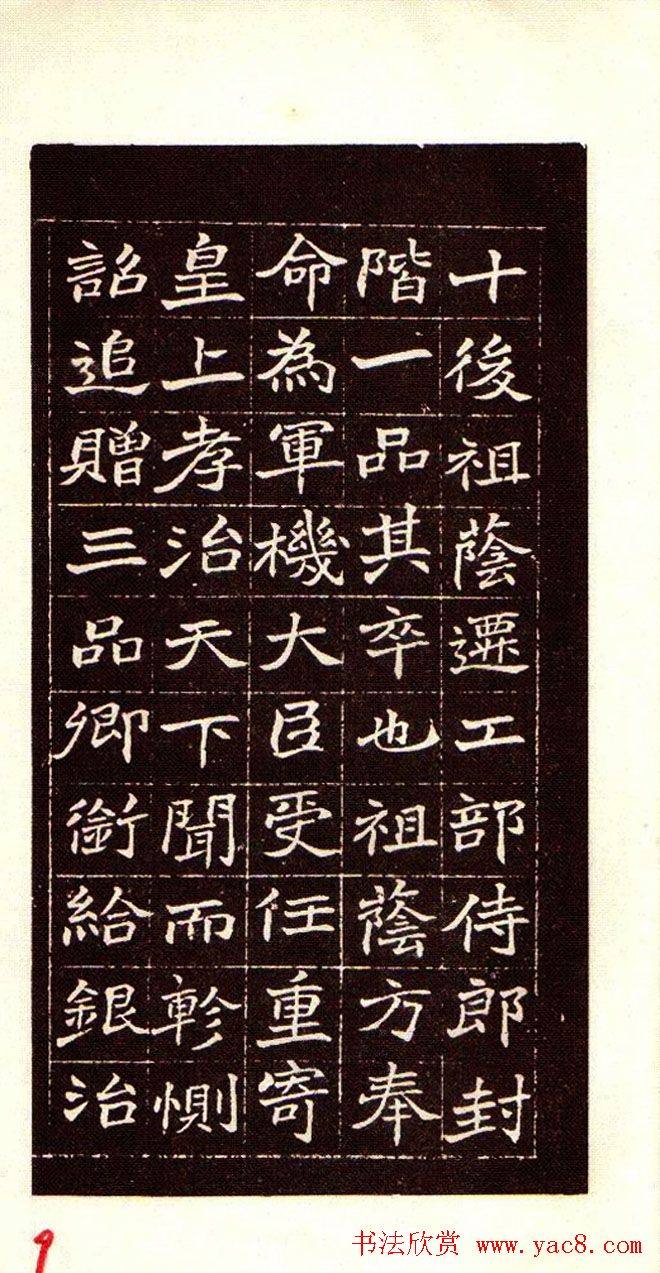 十後祖蔭遷工部侍郎封
階一品其卒也祖蔭方奉
命為軍機大臣受任重寄
皇上孝治天下聞而軫惻
詔追贈三品卿銜給銀治
9
书法欣赏 www.yac8.com